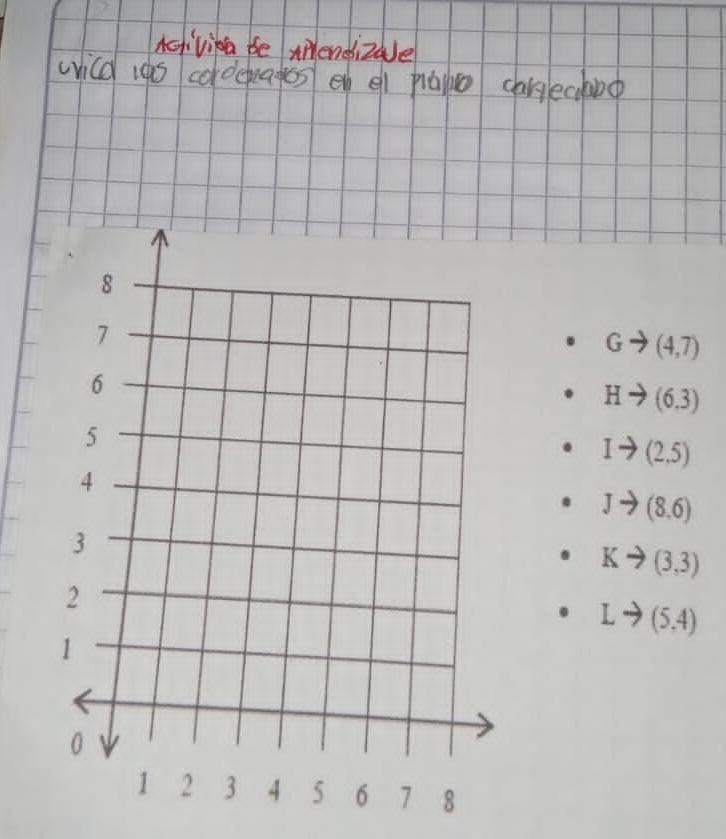 Actívida de Aprendizaje
Unica las cordenadas en el plano carteciano
8
7
6
5
4
3
2
1
0
1 2 3 4 5 6 7 8
• G → (4,7)
• H → (6,3)
• I → (2,5)
• J → (8,6)
• K → (3,3)
• L → (5,4)